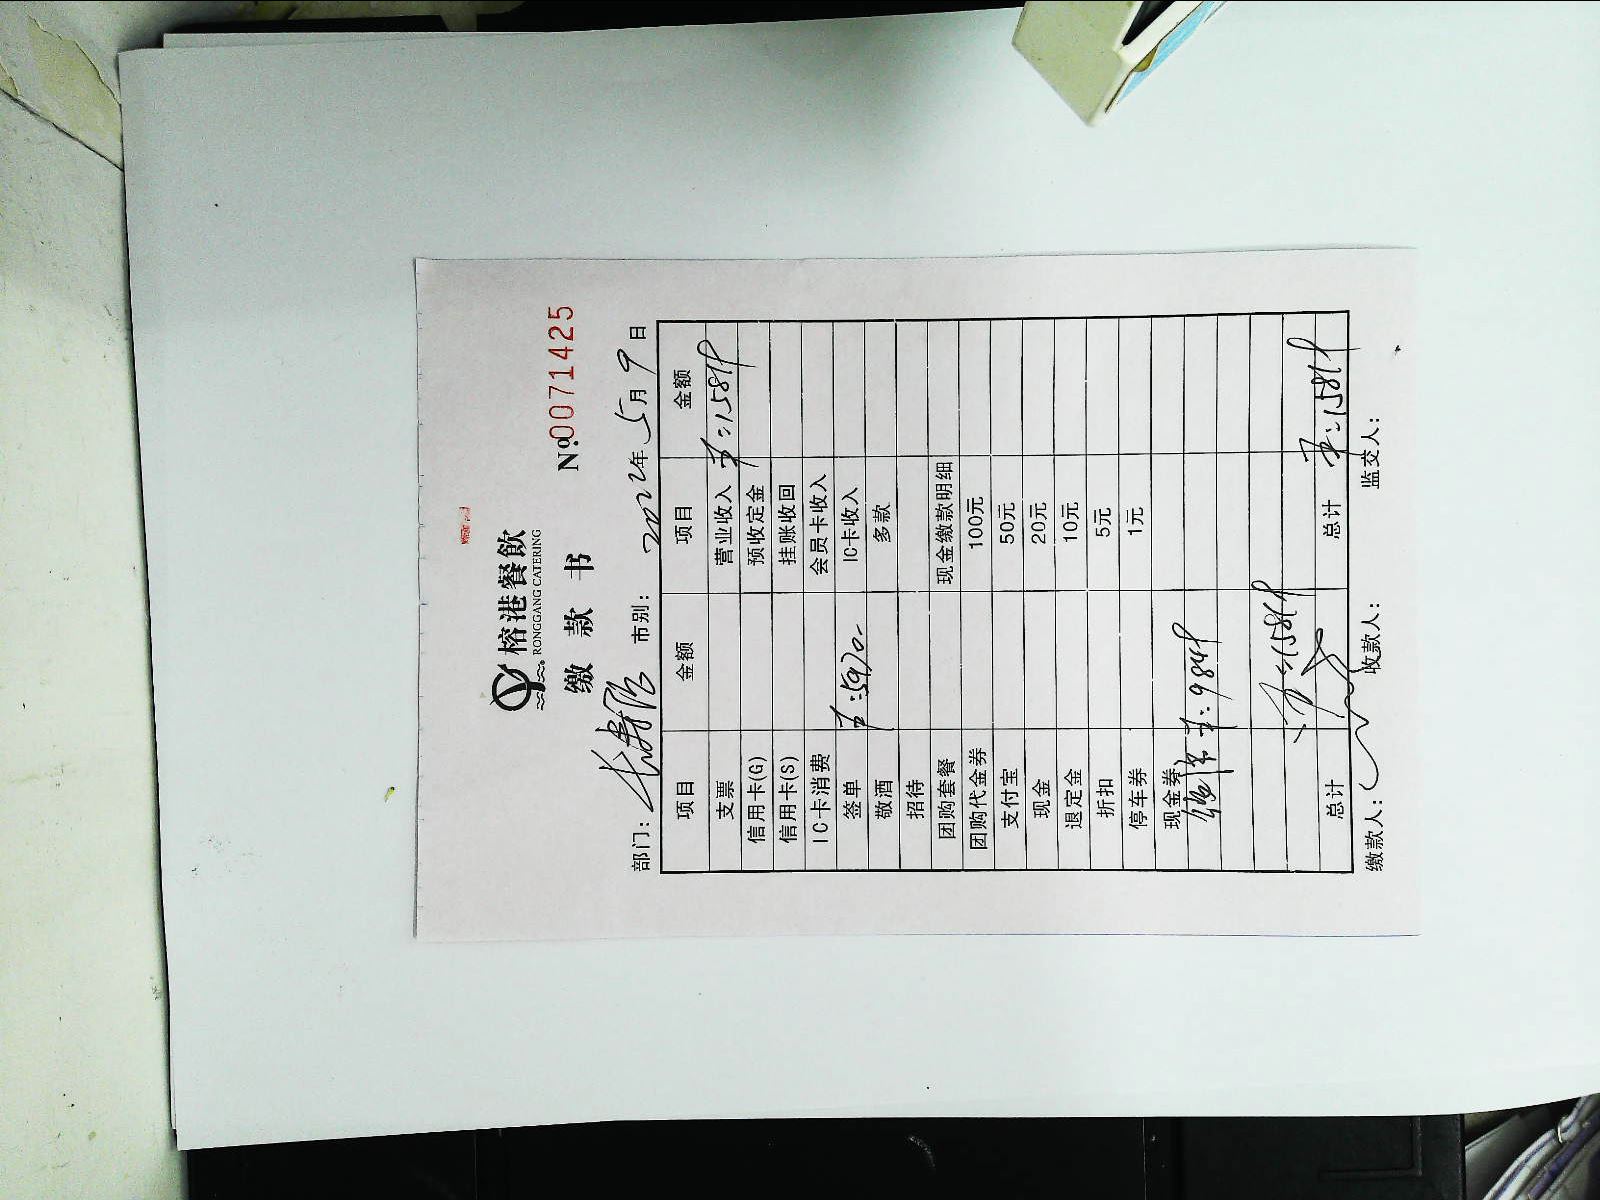 榕港餐飲
RONGGANG CATERING
缴 款 书
№0071425
部门: 市别: 2022年 5月 9日
项目 金额 项目 金额
支票 营业收入
信用卡(G) 预收定金
信用卡(S) 挂账收回
IC卡消费 会员卡收入
签单 IC卡收入
敬酒 多款
招待
团购套餐 现金缴款明细
团购代金券 100元
支付宝 50元
现金 20元
退定金 10元
折扣 5元
停车券 1元
现金券
总计 总计
缴款人: 收款人: 监交人: